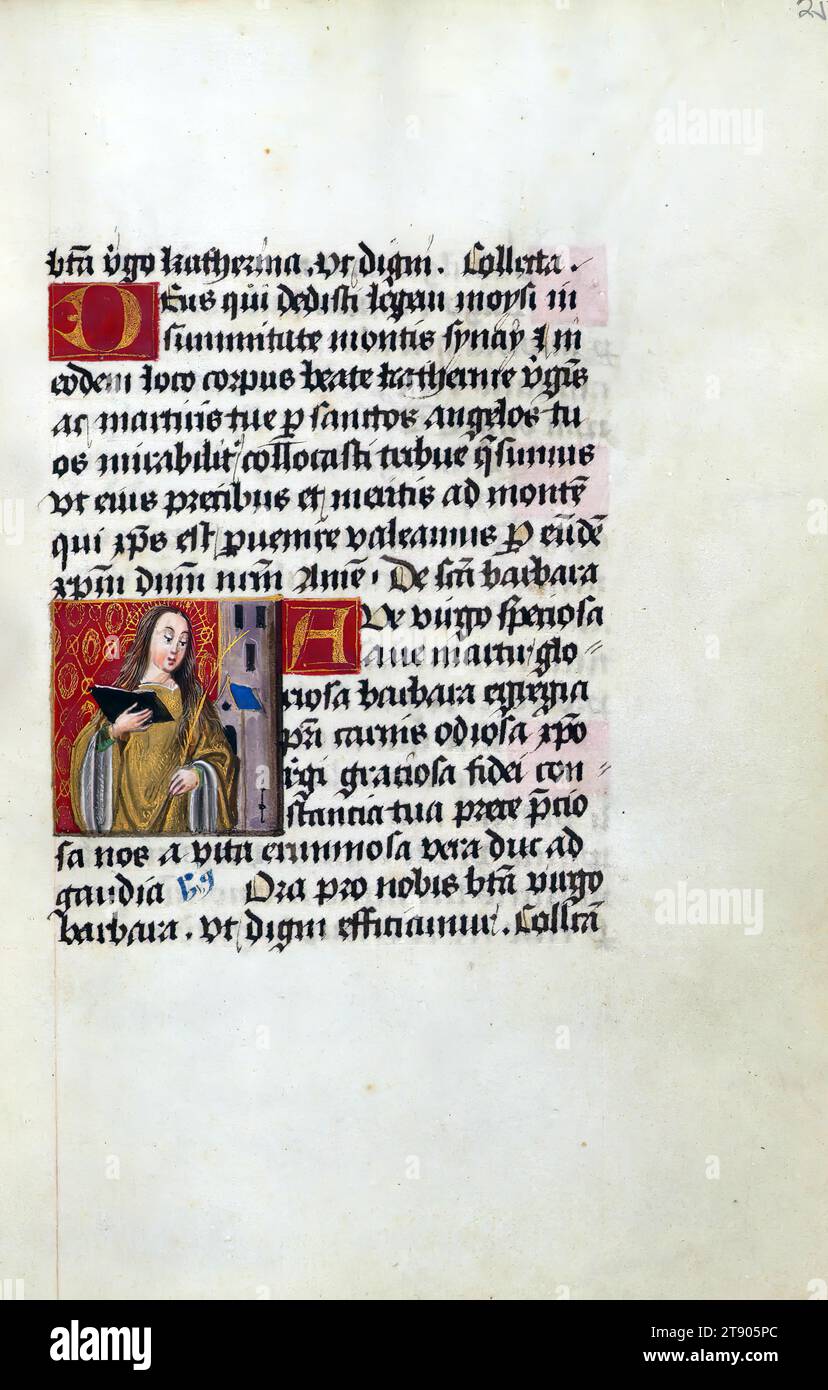 25
bt̄a v̄go katherina. vt digni. Collecta.
DEus qui dedisti legem moysi in
summitate montis synay ⁊ in
eodem loco corpus beate katherine v̄gīs
ac martiris tue p sanctos angelos tu
os mirabilit' collocasti tribue q̄sumus
vt eius precibus et meritis ad montē
qui xp̄s est puenire valeamus P eūdē
xp̄m dn̄m nr̄m Amē. De sc̄ta barbara
AVe virgo speciosa
aue martir glo=
riosa barbara
pn̄i carnis odiosa xp̄o
graciosa fidei con=
stancia tua prece p̄cio
sa nos a vita erumnosa vera duc ad
gaudia Ora pro nobis bt̄a virgo
barbara. vt digni efficiamur. Coll̄cā
alamy
Image ID: 2T905PC
www.alamy.com